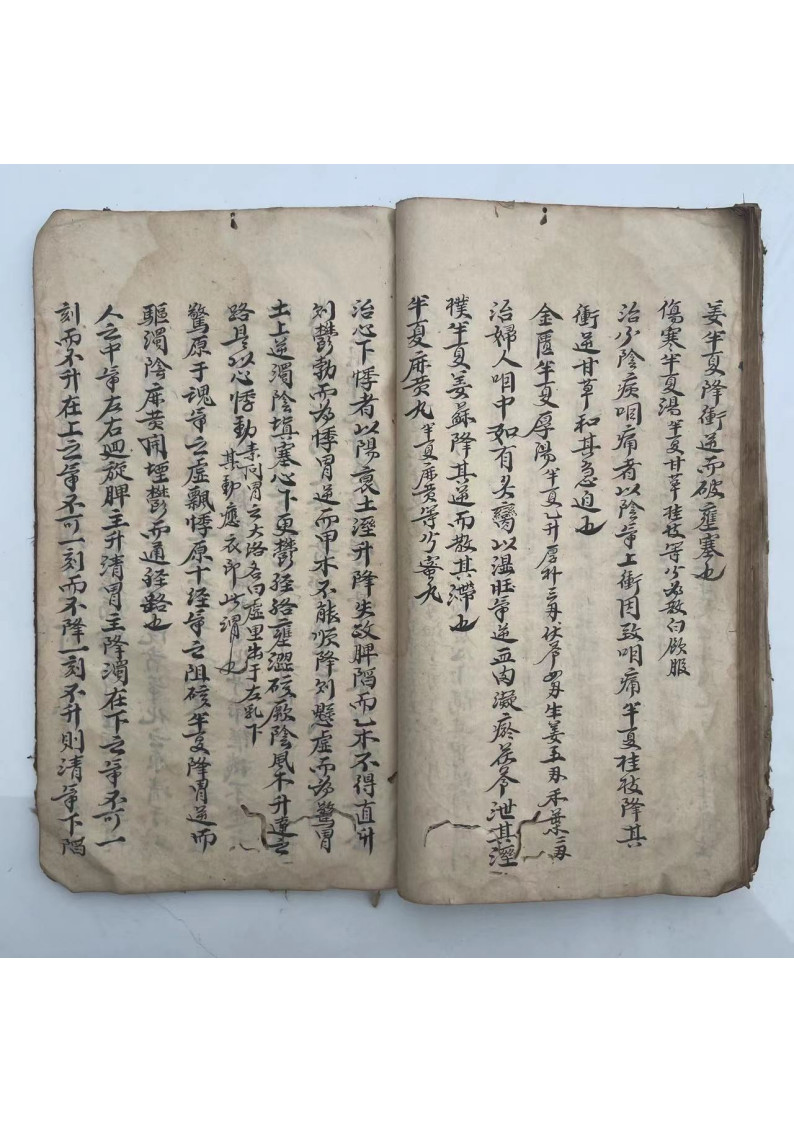 姜半夏降衝逆而破壅塞也
傷寒半夏湯半夏甘草桂枝等分為散白飲服
治少陰疾咽痛者以陰氣上衝因致咽痛半夏桂枝降其
衝逆甘草和其急迫也
金匱半夏厚湯半夏乙升厚朴三両伏苓四両生姜五両禾葉二両
治婦人咽中如有炙臠以湿旺氣逆血肉凝瘀茯苓泄其溼
樸半夏姜蘇降其逆而散其滯也
半夏麻黄丸半夏麻黄等分蜜丸
治心下悸者以陽衰土溼升降失政脾陷而乙木不得直升
則鬱勃而為悸胃逆而甲木不能順降則懸虛而為驚胃
土上逆濁陰填塞心下更鬱經絡壅澀碍厥陰風木升達之
路是以心悸動素问胃之大洛名曰虛里出于左乳下其動應衣即此謂也
驚原于魂氣之虛飄悸原于經氣之阻碍半夏降胃逆而
驅濁陰麻黄開堙鬱而通經絡也
人之中氣左右迴旋脾主升清胃主降濁在下之氣不可一
刻而不升在上之氣不可一刻而不降一刻不升則清氣下陷